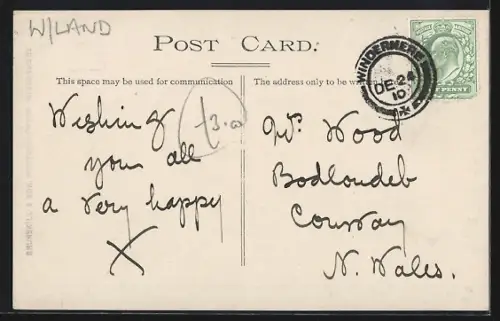 W/LAND
POST CARD.
This space may be used for communication
The address only to be written
WINDERMERE
DE 24
10
PENNY
Wishing
you all
a very happy
X
13.00
Wood
Bodlondeb
Conway
N. Wales.